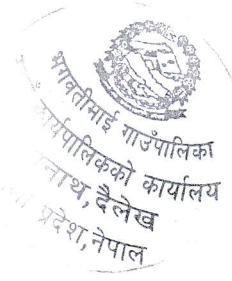 भगवतीमाई गाउँपालिका
कार्यपालिकाको कार्यालय
नाथ, दैलेख
प्रदेश, नेपाल